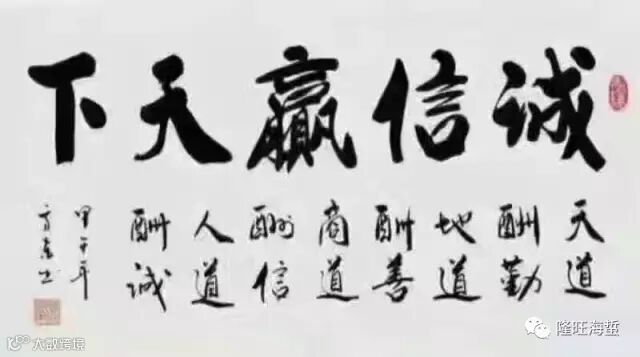 诚信赢天下
天道
酬勤
地道
酬善
商道
酬信
人道
酬诚
甲午年
大数跨境
隆旺海蜇